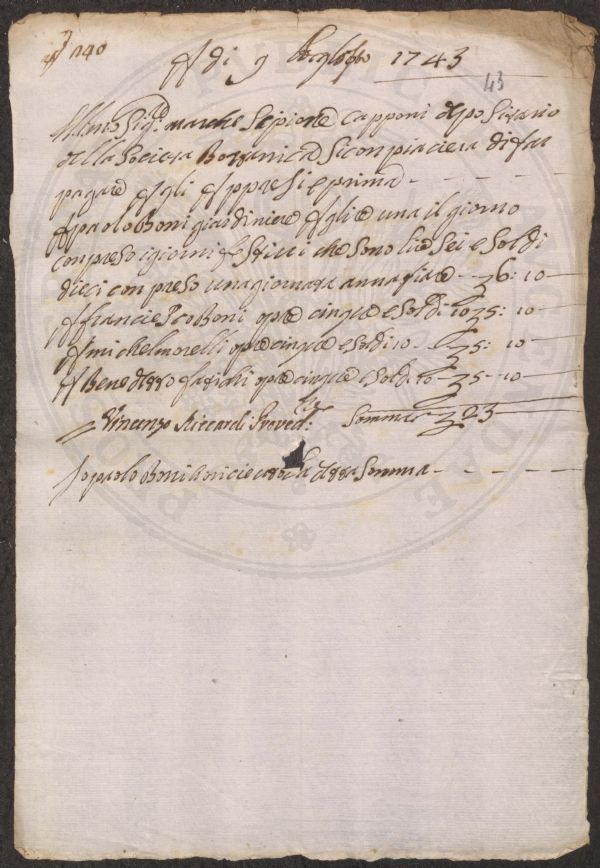 n° 140
A di 9 1743
43
Illmo Sigr marche Scipione Capponi depositario
della Societa Bottanica si conpiacera di far
pagare Agli Appresi e prima - - - - -
A paolo Boni giardiniere A glire una il giorno
conpreso i giorni festivi che sono lire Sei e Soldi
dieci conpreso una giornata annafiare - 6: 10 -
A francesco Boni opre cinque e Soldi 10 5: 10 -
A michel morelli opre cinque e Soldi 10 - 5: 10 -
A Benedetto opre cinque e Soldi 10 - 5 - 10 -
Vincenzo Riccardi Proved.re Somma 23
Io paolo Boni ó riceuto la detta Somma - - - - -